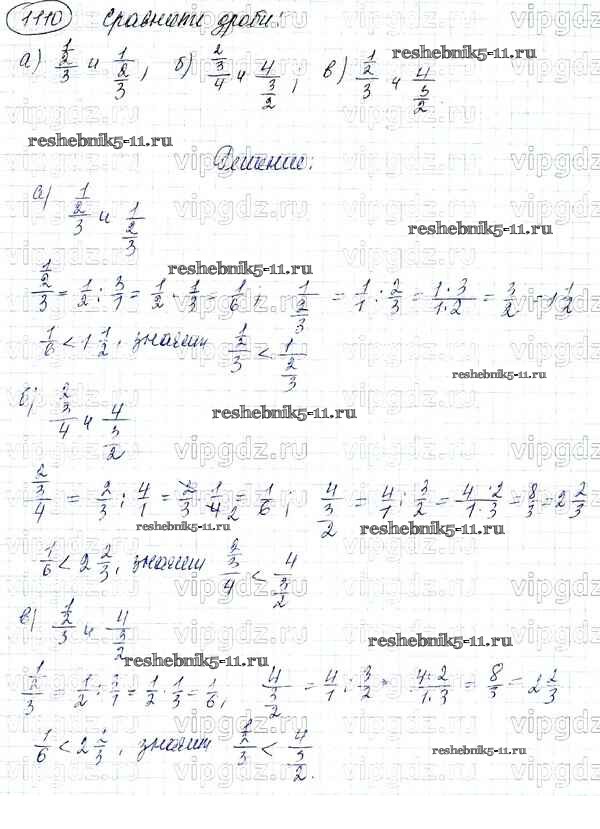 1110 Сравнить дроби:
а) (1/2)/3 и 1/(2/3), б) (2/3)/4 и 4/(3/2), в) (1/2)/3 и 4/(3/2).
reshebnik5-11.ru
reshebnik5-11.ru
Решение:
а) (1/2)/3 и 1/(2/3)
reshebnik5-11.ru
reshebnik5-11.ru
(1/2)/3 = 1/2 : 3/1 = 1/2 · 1/3 = 1/6; 1/(2/3) = 1/1 : 2/3 = 1·3/1·2 = 3/2 = 1 1/2
1/6 < 1 1/2, значит (1/2)/3 < 1/(2/3)
reshebnik5-11.ru
б) (2/3)/4 и 4/(3/2)
reshebnik5-11.ru
(2/3)/4 = 2/3 : 4/1 = 2/3 · 1/4 2 = 1/6; 4/(3/2) = 4/1 : 3/2 = 4·2/1·3 = 8/3 = 2 2/3
reshebnik5-11.ru
reshebnik5-11.ru
1/6 < 2 2/3, значит (2/3)/4 < 4/(3/2)
в) (1/2)/3 и 4/(3/2)
reshebnik5-11.ru
reshebnik5-11.ru
(1/2)/3 = 1/2 : 3/1 = 1/2 · 1/3 = 1/6, 4/(3/2) = 4/1 : 3/2 = 4·2/1·3 = 8/3 = 2 2/3
1/6 < 2 2/3, значит (1/2)/3 < 4/(3/2).
reshebnik5-11.ru
vipgdz.ru